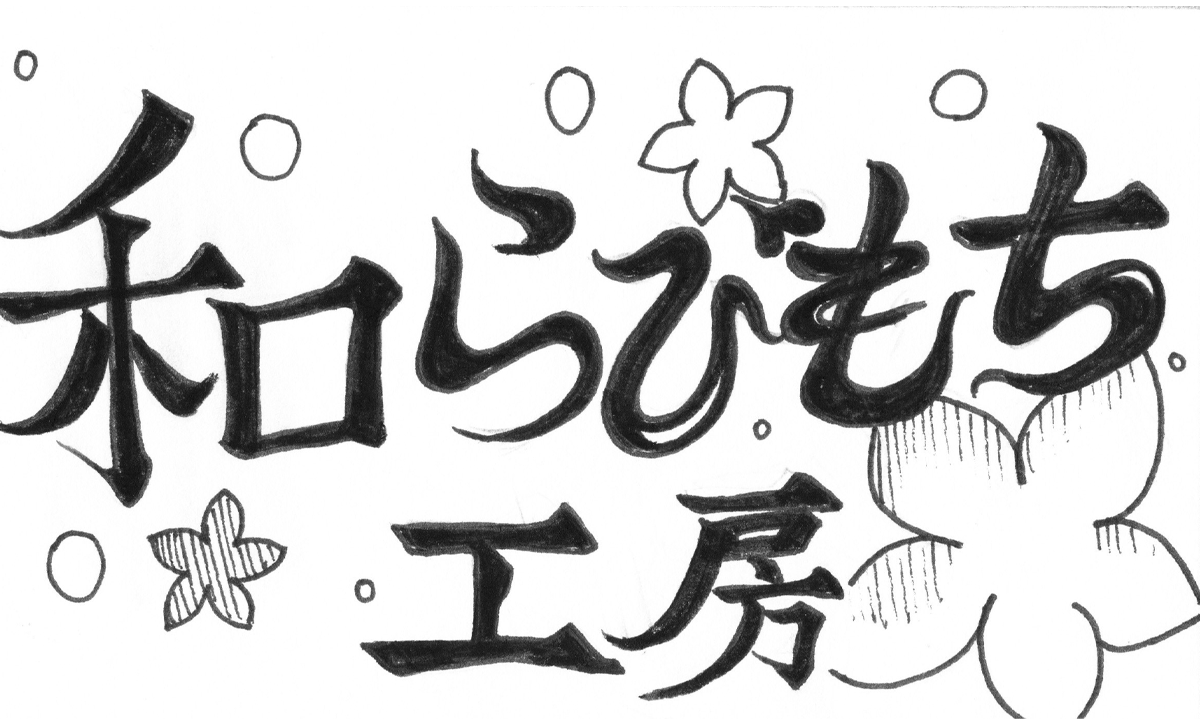 和らびもち
工房